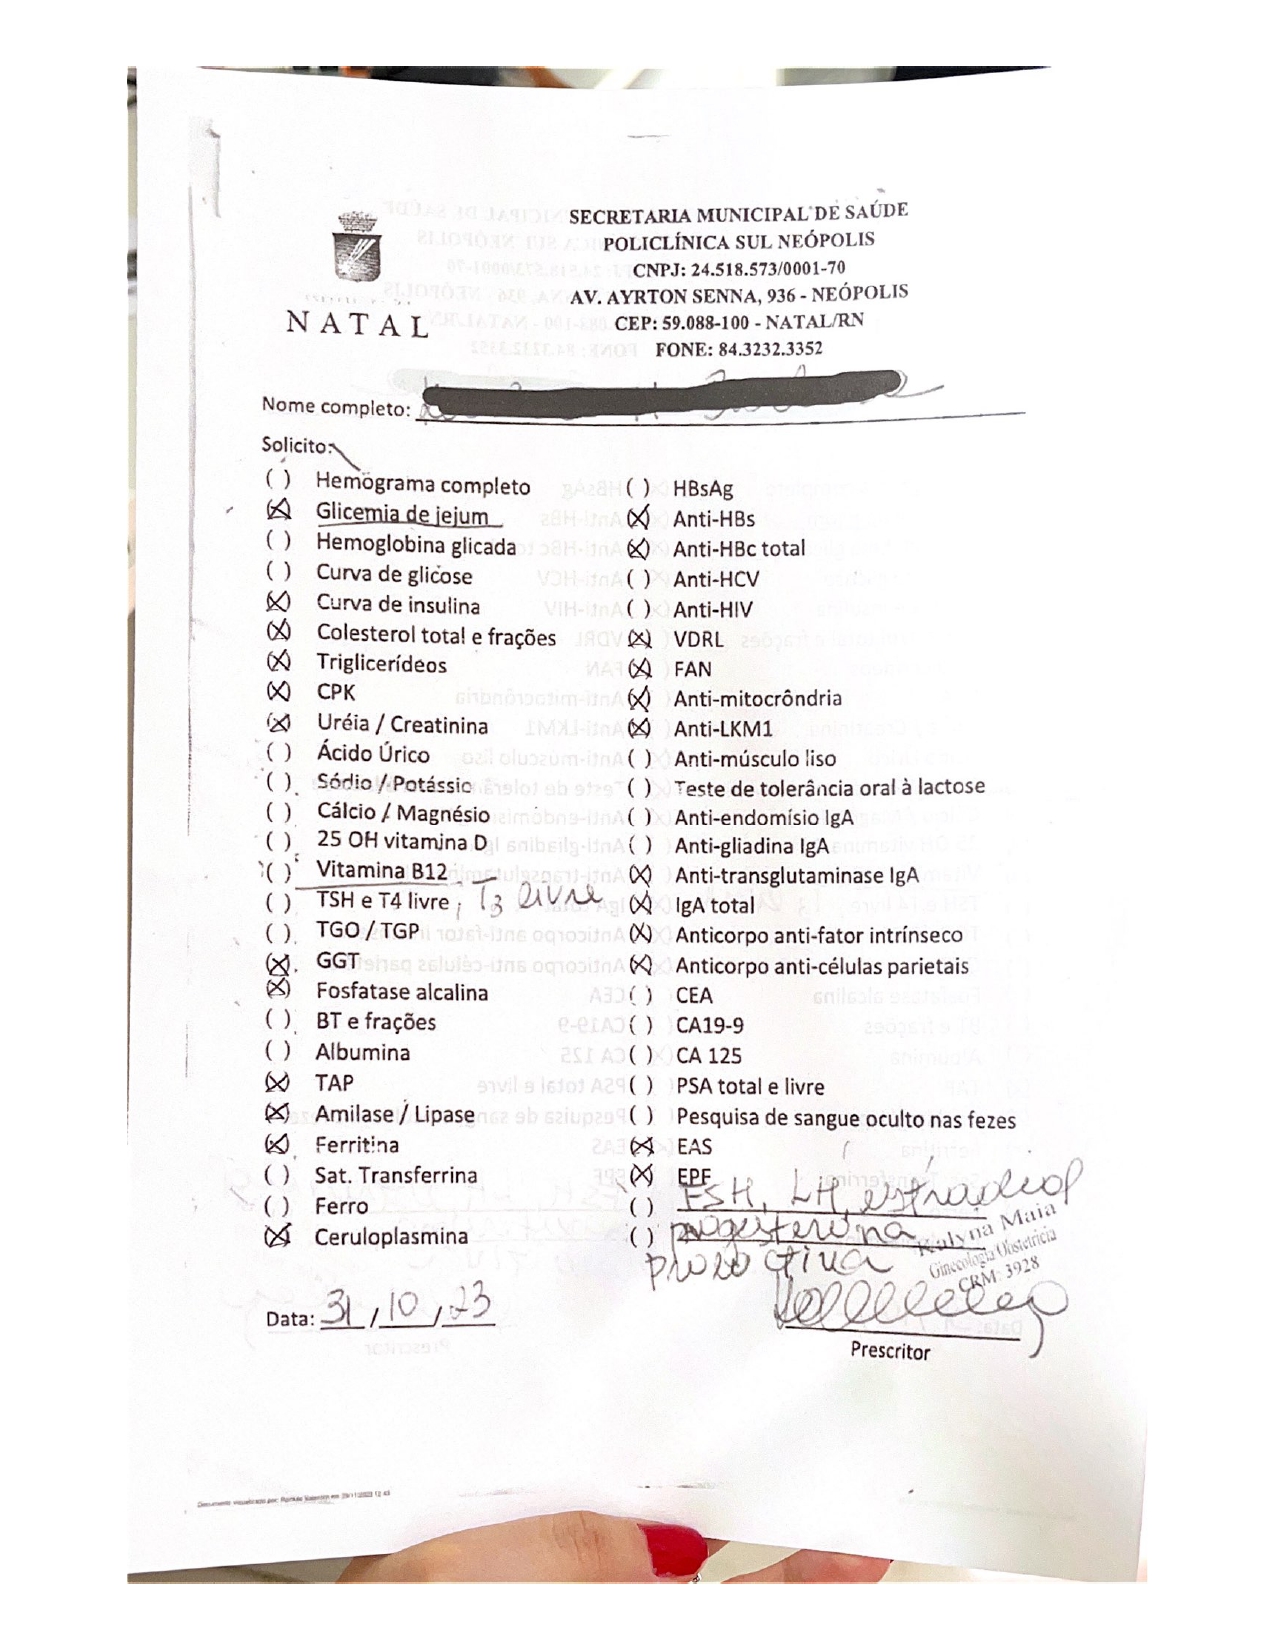 SECRETARIA MUNICIPAL DE SAÚDE
POLICLÍNICA SUL NEÓPOLIS
CNPJ: 24.518.573/0001-70
AV. AYRTON SENNA, 936 - NEÓPOLIS
CEP: 59.088-100 - NATAL/RN
FONE: 84.3232.3352
NATAL
Nome completo:
Solicito:
( ) Hemograma completo
(X) Glicemia de jejum
( ) Hemoglobina glicada
( ) Curva de glicose
(X) Curva de insulina
(X) Colesterol total e frações
(X) Triglicerídeos
(X) CPK
(X) Uréia / Creatinina
( ) Ácido Úrico
( ) Sódio / Potássio
( ) Cálcio / Magnésio
( ) 25 OH vitamina D
( ) Vitamina B12
( ) TSH e T4 livre, T3 livre
( ) TGO / TGP
(X) GGT
(X) Fosfatase alcalina
( ) BT e frações
( ) Albumina
(X) TAP
(X) Amilase / Lipase
(X) Ferritina
( ) Sat. Transferrina
( ) Ferro
(X) Ceruloplasmina
( ) HBsAg
(X) Anti-HBs
(X) Anti-HBc total
( ) Anti-HCV
( ) Anti-HIV
(X) VDRL
(X) FAN
(X) Anti-mitocrôndria
(X) Anti-LKM1
( ) Anti-músculo liso
( ) Teste de tolerância oral à lactose
( ) Anti-endomísio IgA
( ) Anti-gliadina IgA
(X) Anti-transglutaminase IgA
(X) IgA total
(X) Anticorpo anti-fator intrínseco
(X) Anticorpo anti-células parietais
( ) CEA
( ) CA19-9
( ) CA 125
( ) PSA total e livre
( ) Pesquisa de sangue oculto nas fezes
(X) EAS
(X) EPF
( ) FSH, LH, estradiol
( ) progesterona
prolactina
Kalyna Maia
Ginecologia Obstetrícia
CRM: 3928
Data: 31/10/23
Prescritor